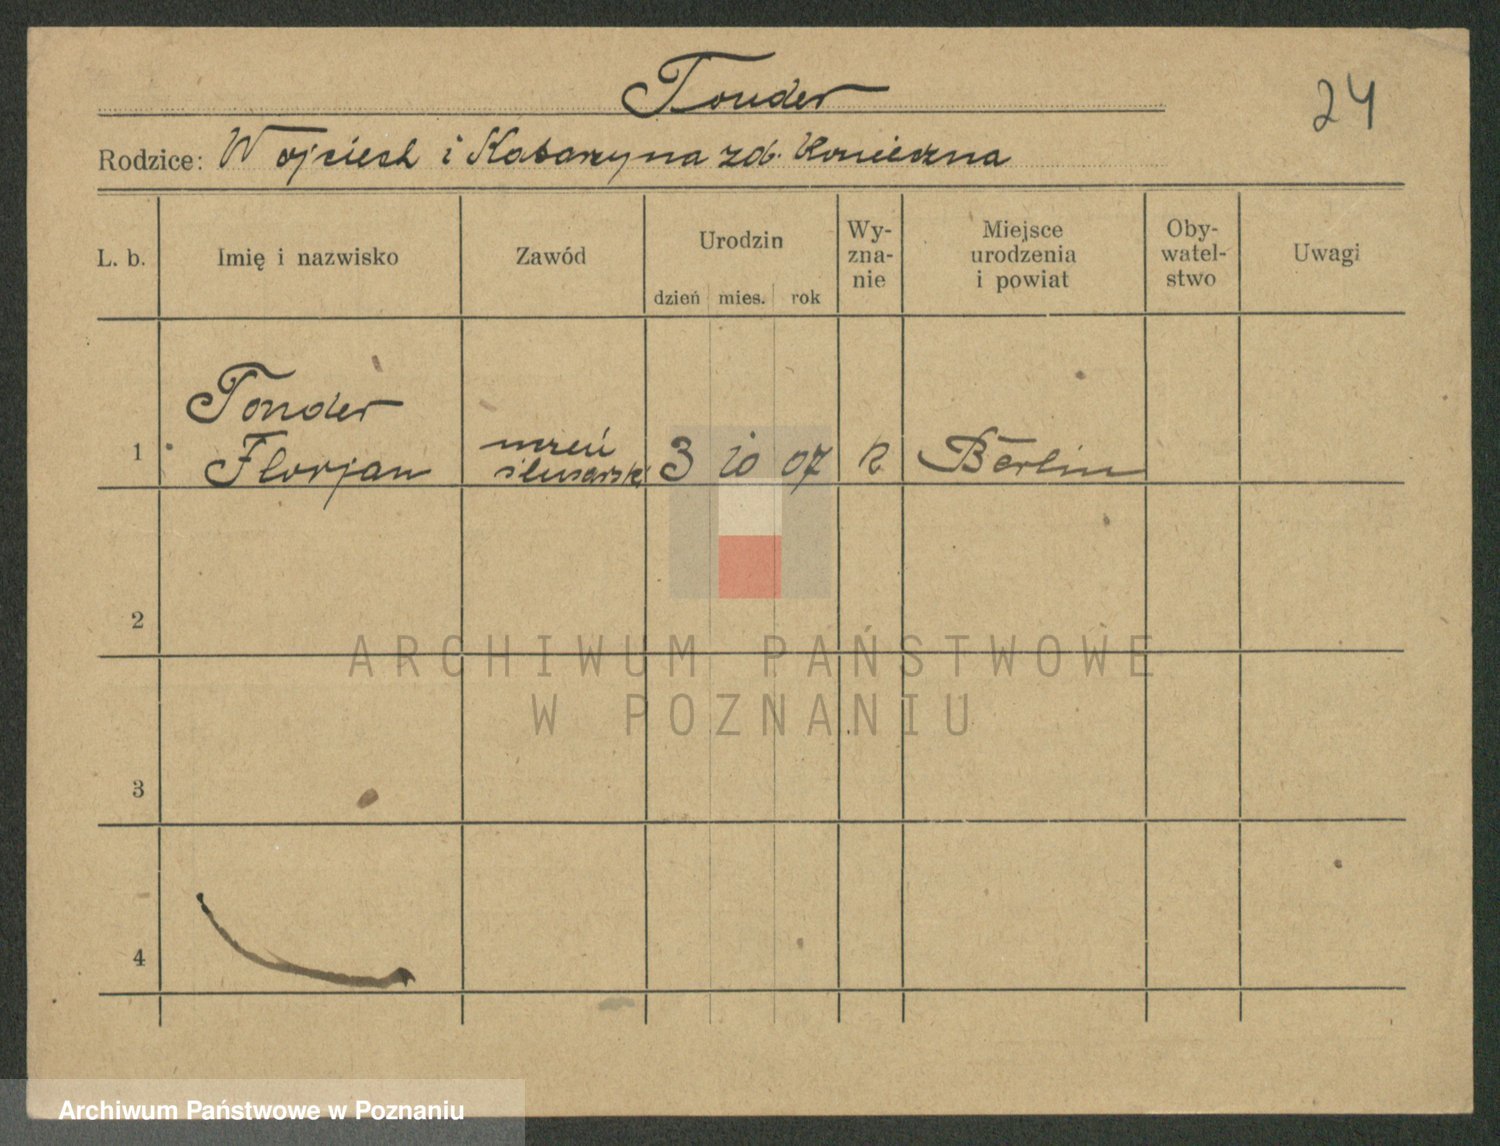 Tonder
24
Rodzice: Wojciech i Katarzyna zd. Konieczna
L. b. Imię i nazwisko Zawód Urodzin dzień mies. rok Wy-zna-nie Miejsce urodzenia i powiat Oby-watel-stwo Uwagi
Tonder
1 Florjan uczeń ślusarski 3 10 07 k Berlin
2
3
4
ARCHIWUM PAŃSTWOWE
W POZNANIU
Archiwum Państwowe w Poznaniu